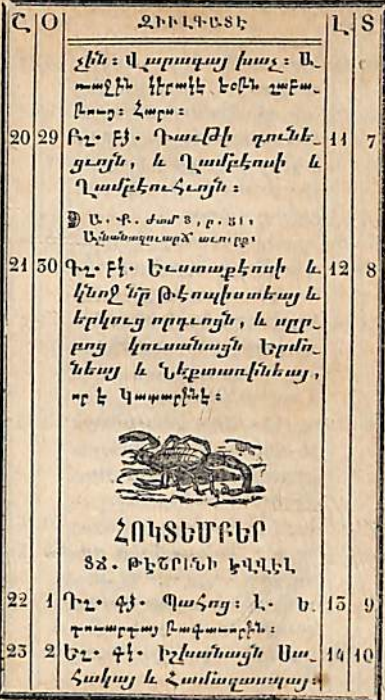 Շ Օ ԶԻՒԼԳԱՏԷ Լ Տ
չին։ Վարագայ խաչ։ Ա-
ռաջին կիրակէ եօթն շաբա-
թուց։ Հարս։
20 29 Բշ. բձ. Դաւթի դունե- 11 7
ցւոյն, և Ղամբէոսի և
Ղամբէուհւոյն։
Ա. Ք. ժամ 8, ր. 51,
Աշնանազուարճ աւուրք։
21 30 Գշ. բկ. Եւստաքէոսի և 12 8
կնոջ նր Թէոպիստեայ և
երկուց որդւոցն, և սըր-
բոց կուսանացն Երմո-
նեայ և Նեքտառինեայ,
որ է Կապարինէ։
ՀՈԿՏԵՄԲԵՐ
ՏՃ. ԹԷՇՐԻՆԻ ԷՎՎԷԼ
22 1 Դշ. գձ. Պահոց։ Լ. ե. 13 9
23 2 Եշ. գկ. Իշխանացն Սա- 14 10
հակայ և Համազասպայ։